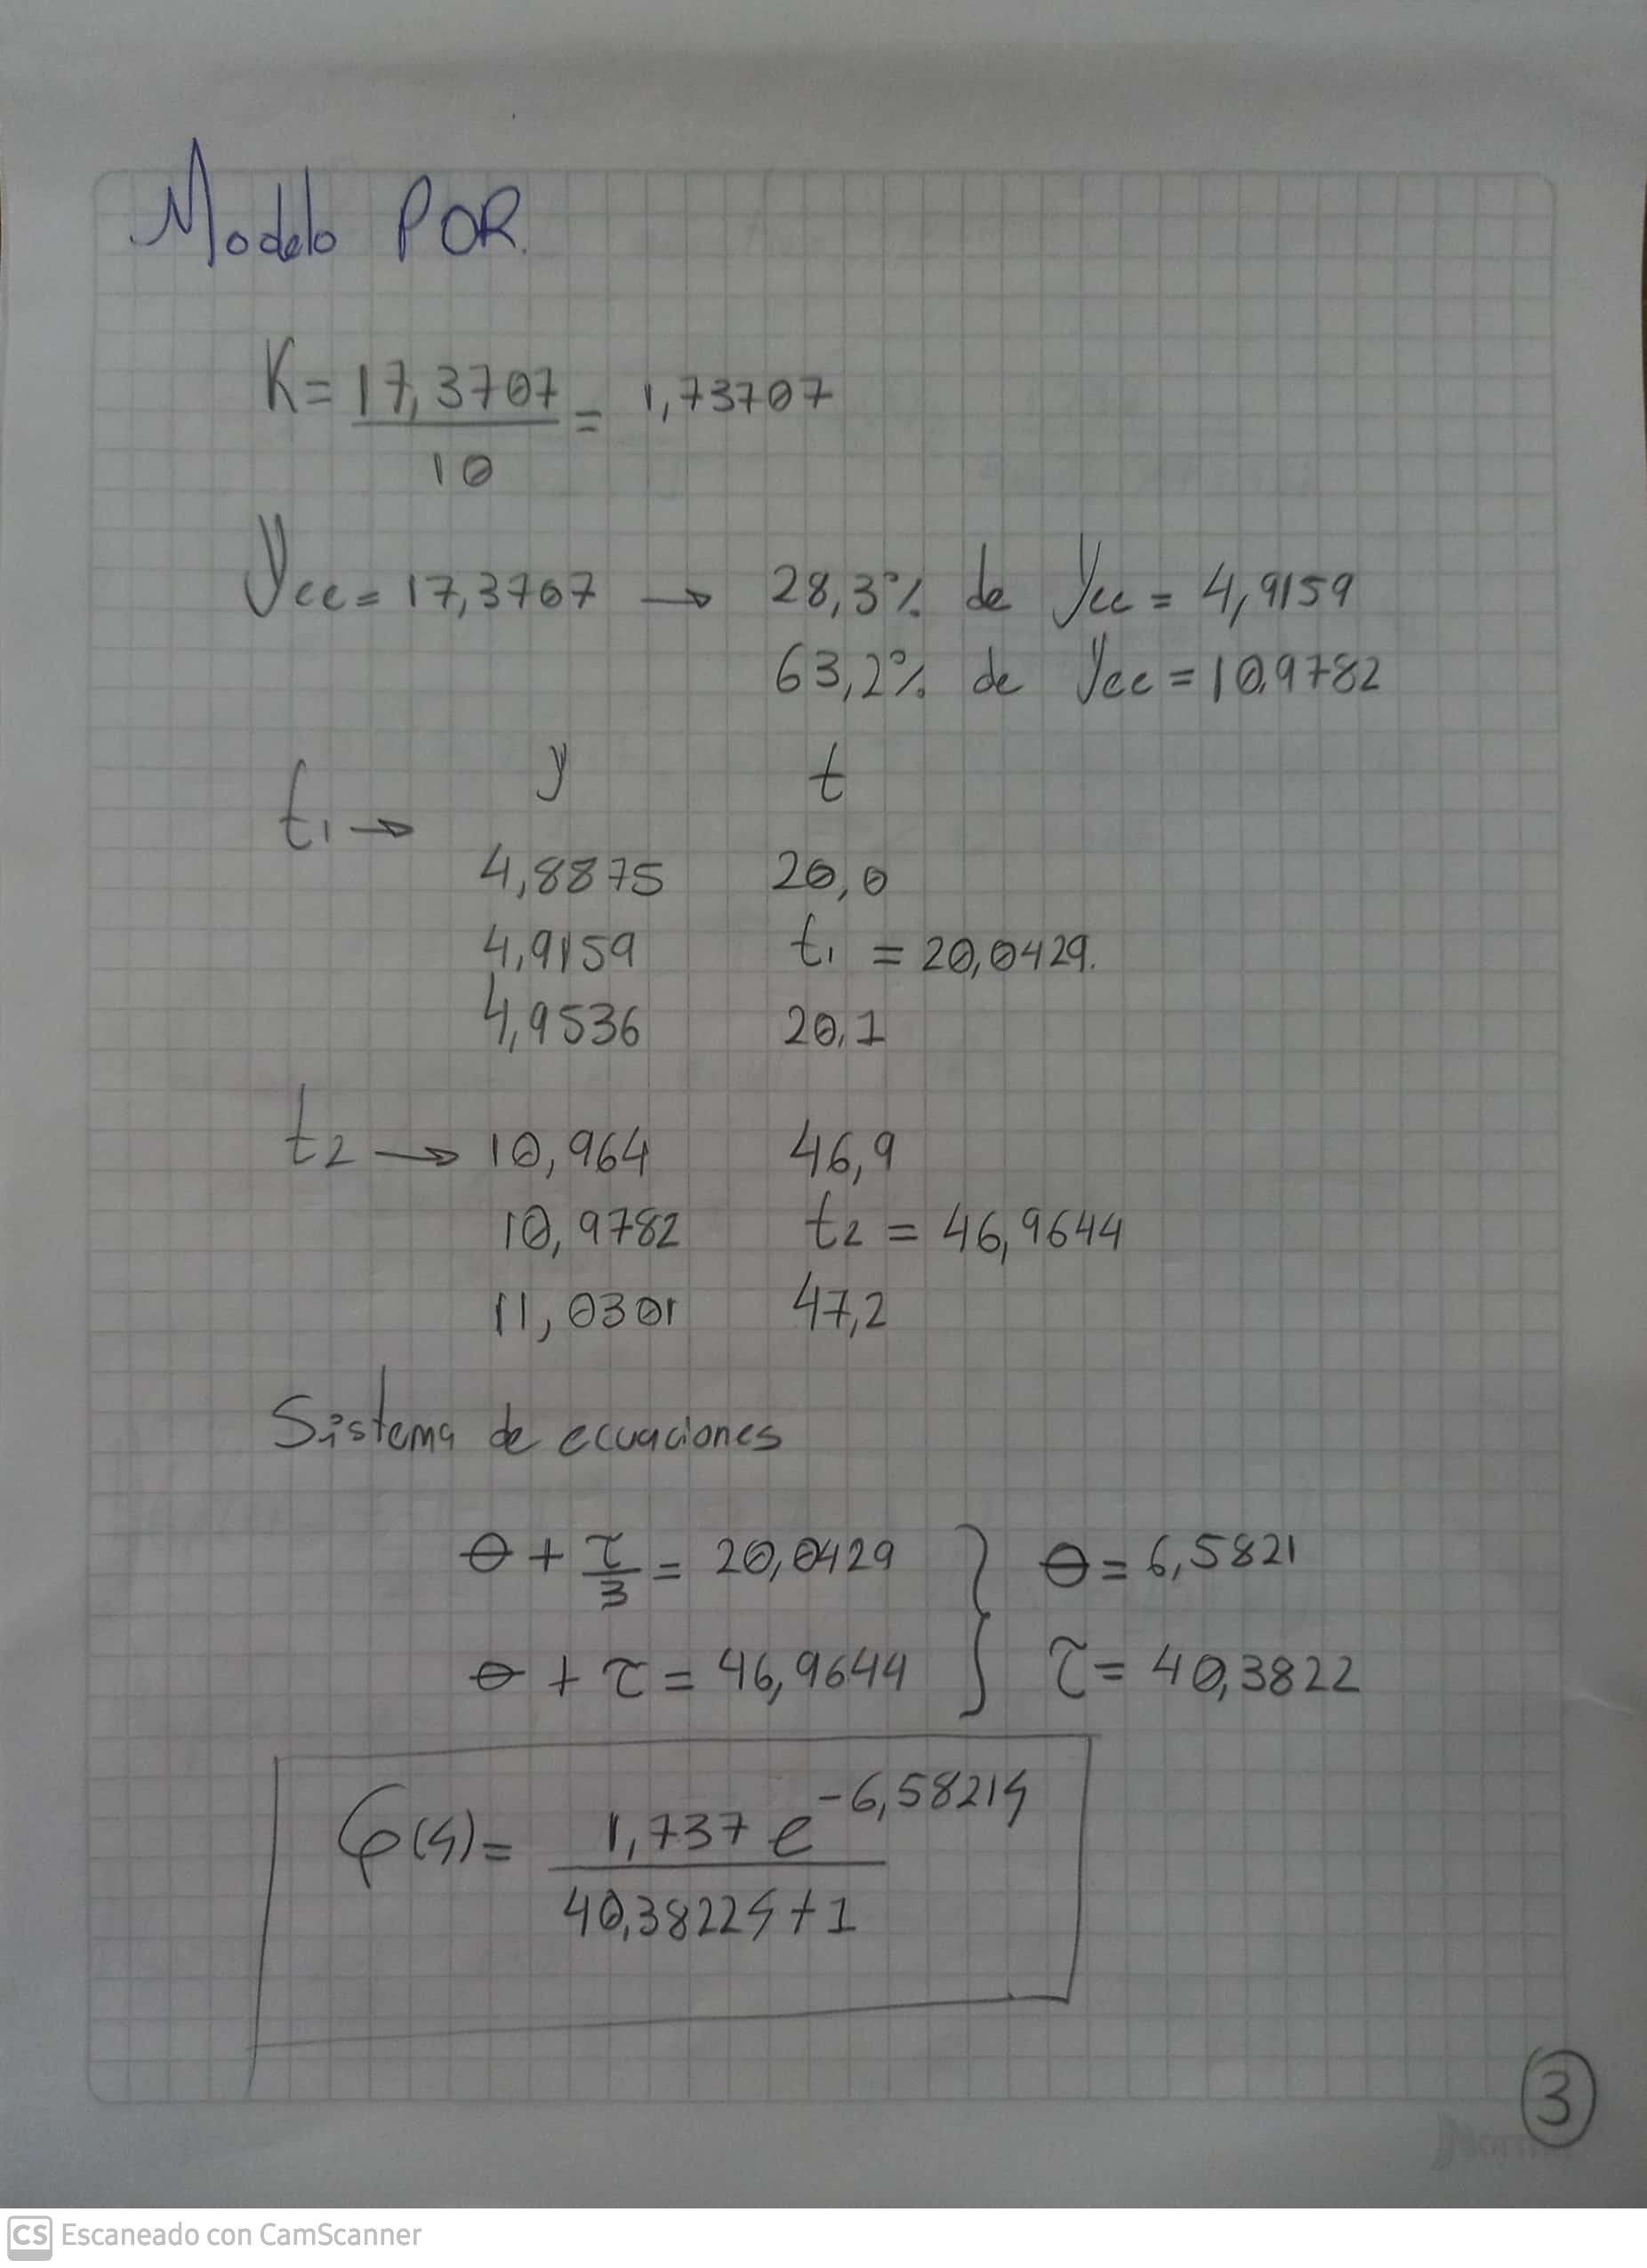 Modelo POR.
K = 17,3707 / 10 = 1,73707
Yee = 17,3707 → 28,3% de Yee = 4,9159
63,2% de Yee = 10,9782
y t
t1 →
4,8875 20,0
4,9159 t1 = 20,0429.
4,9536 20,1
t2 → 10,964 46,9
10,9782 t2 = 46,9644
11,0301 47,2
Sistema de ecuaciones
θ + τ/3 = 20,0429 } θ = 6,5821
θ + τ = 46,9644 } τ = 40,3822
G(s) = 1,737 e^-6,5821s / 40,3822s + 1
3
CS Escaneado con CamScanner